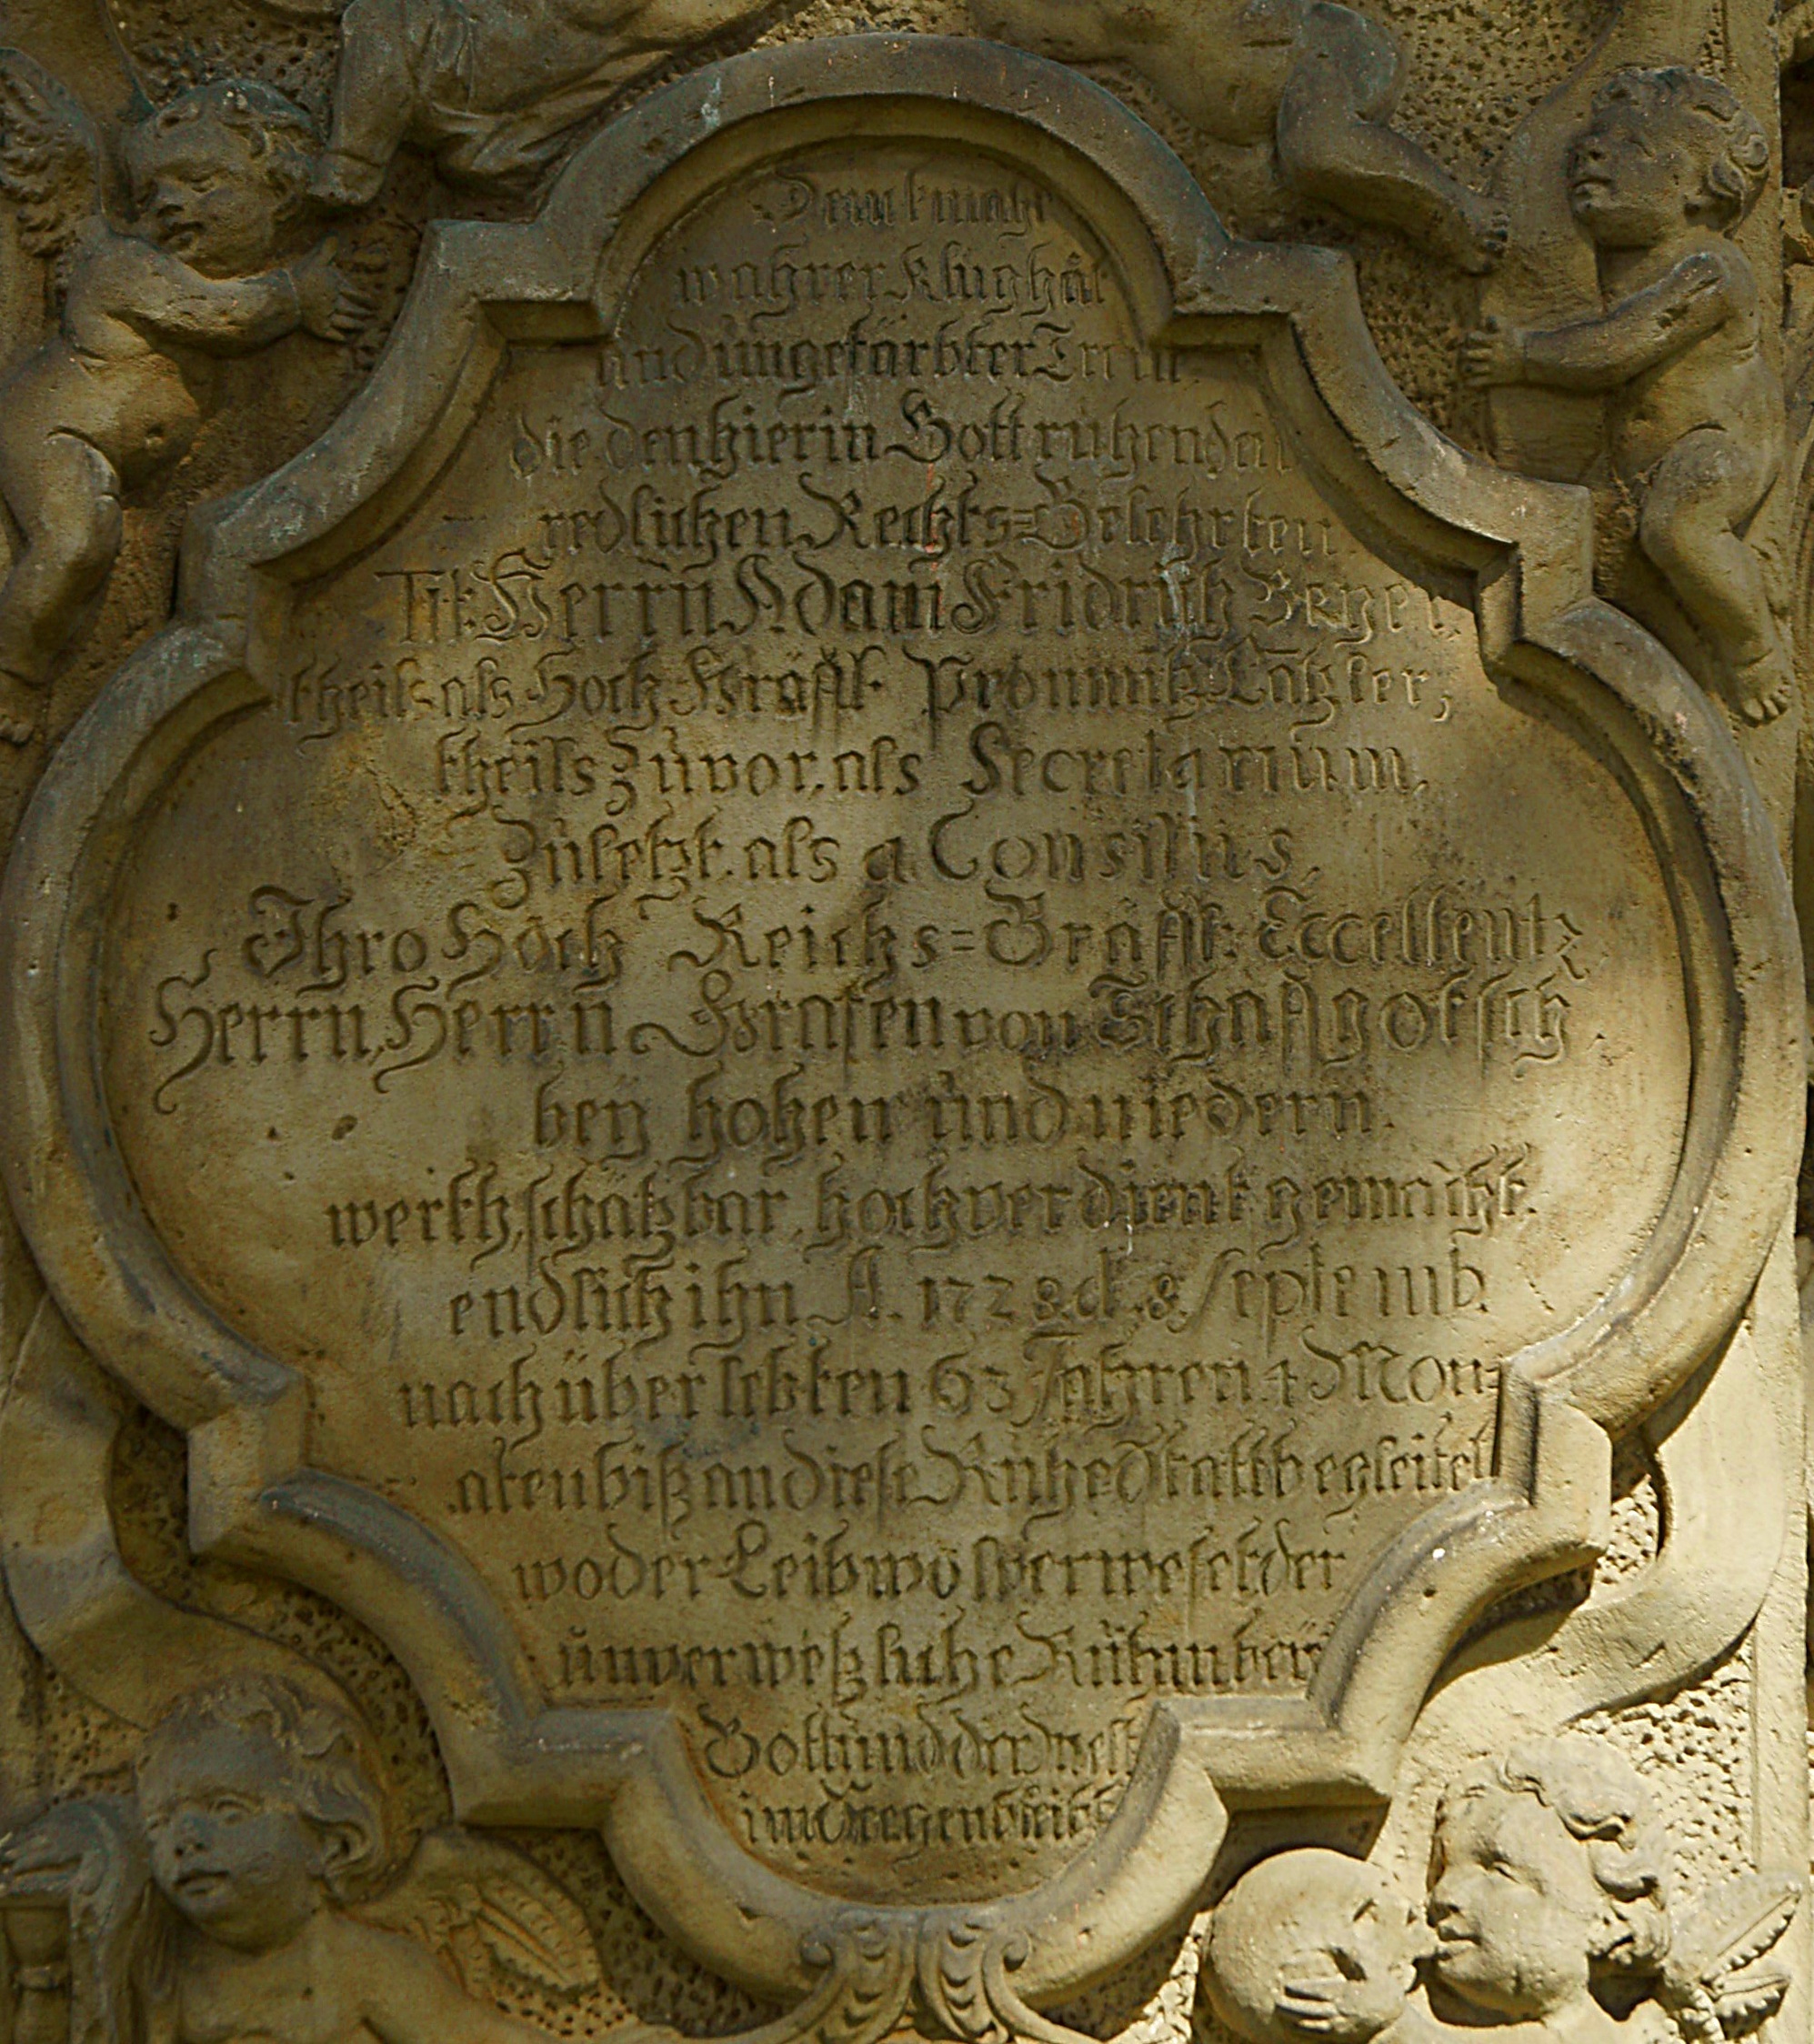 Denckmahl
wahrer Klugheit
und ungefärbter Treu
die den hier in Gott ruhenden
redlichen Rechts=Gelehrten
Tit. Herrn Adam Fridrich Beyer
theils als Hoch Gräffl. Promnitz
theils zuvor, als Secretarium,
Zuletzt als a Consiliis,
Ihro Hoch Reichs=Gräffl: Excellentz
Herrn, Herrn Grafen von Schaffgotsch
bey hohen und niedern
werth, schätzbar, hochverdient gemacht.
endlich ihn A. 1728 d. 8 Septemb.
nach überlebten 63 Jahren 4 Mon=
aten biß an diese Ruhe Statt begleitet
wo der Leib wo verweset, der
unverweßliche Ruhm bey
Gott und der Welt
im Seegen bleibt